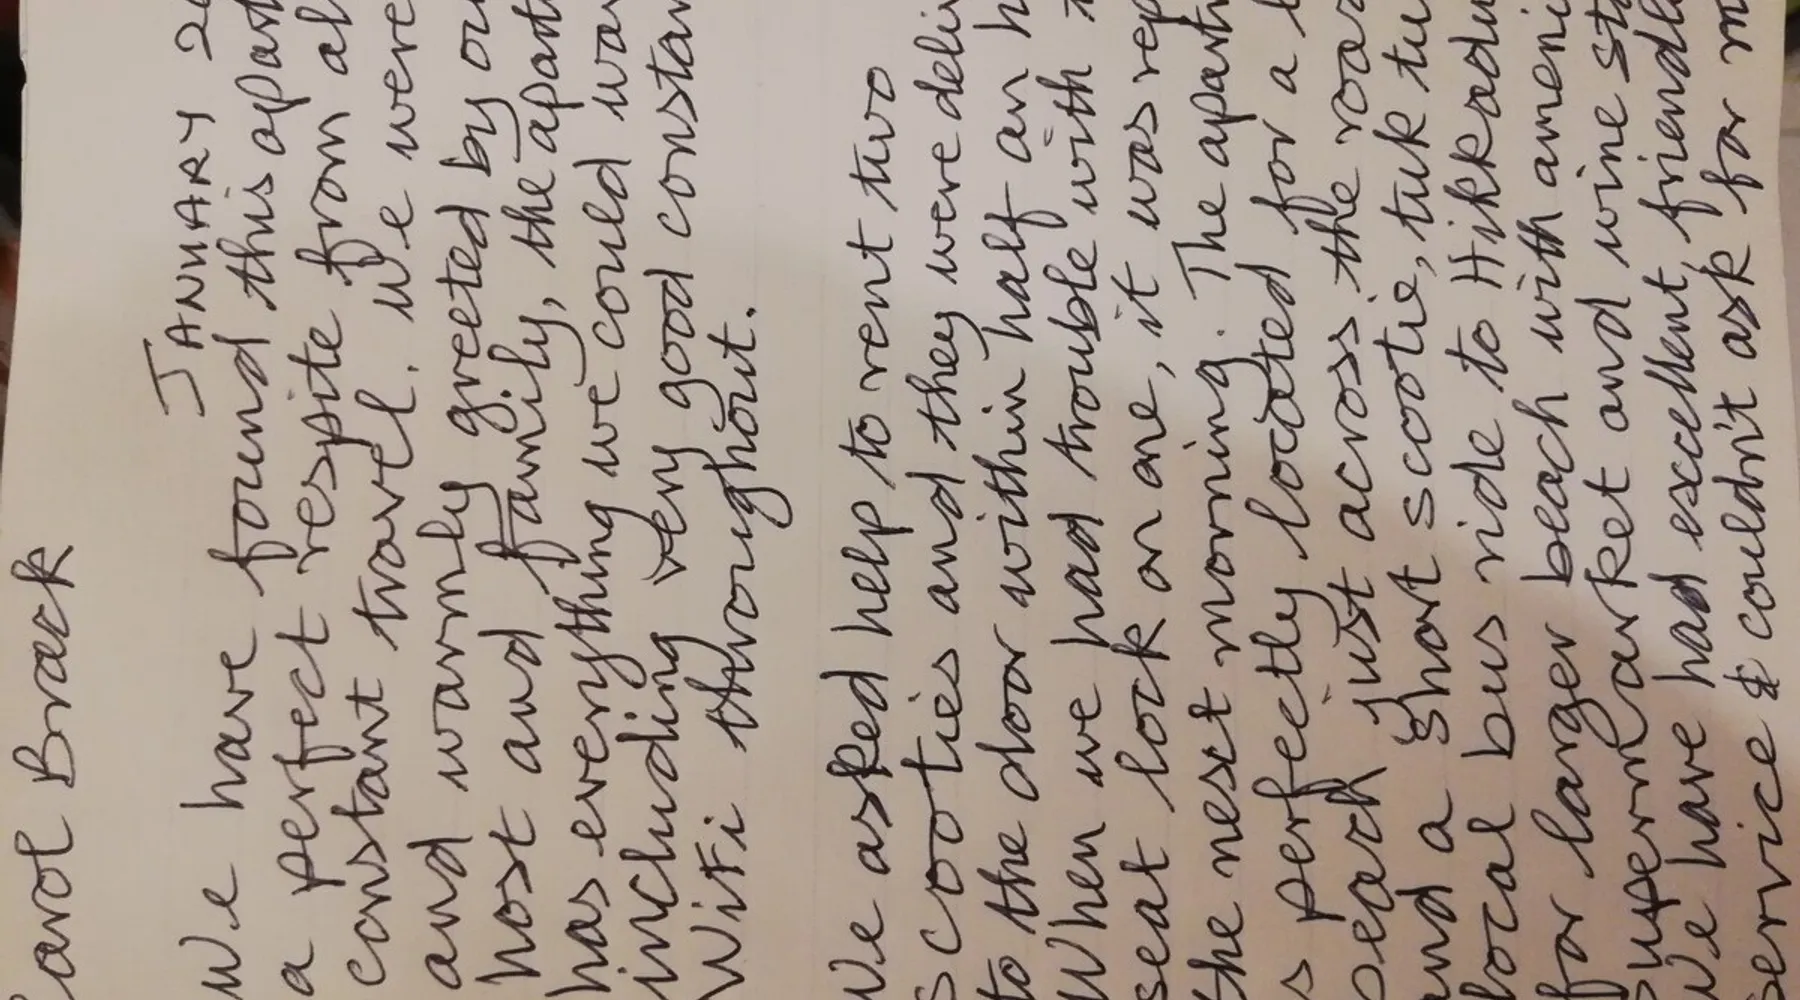 Carol Brack
JANUARY 20
We have found this apart
a perfect respite from all
constant travel. We were
and warmly greeted by our
host and family, the apart
has everything we could wan
including very good constan
WiFi throughout.
We asked help to rent two
scooties and they were deliv
to the door within half an h
When we had trouble with
seat lock on one, it was rep
the next morning. The apart
s perfectly located for a
beach just across the road
and a short scootie, tuk tu
local bus ride to Hikkadu
for larger beach with ameni
supermarket and wine sto
We have had excellent, friendl
service & couldn't ask for m